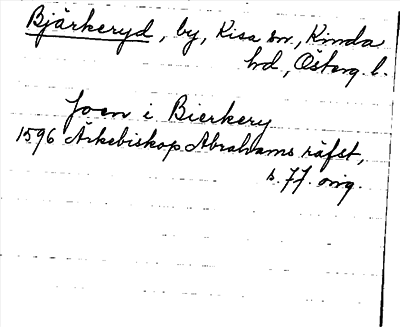 Bjärkeryd, by, Kisa sn, Kinda
hd, Österg. l.
Joen i Bierkery
1596 Ärkebiskop Abrahams räfst,
s. 77. orig.